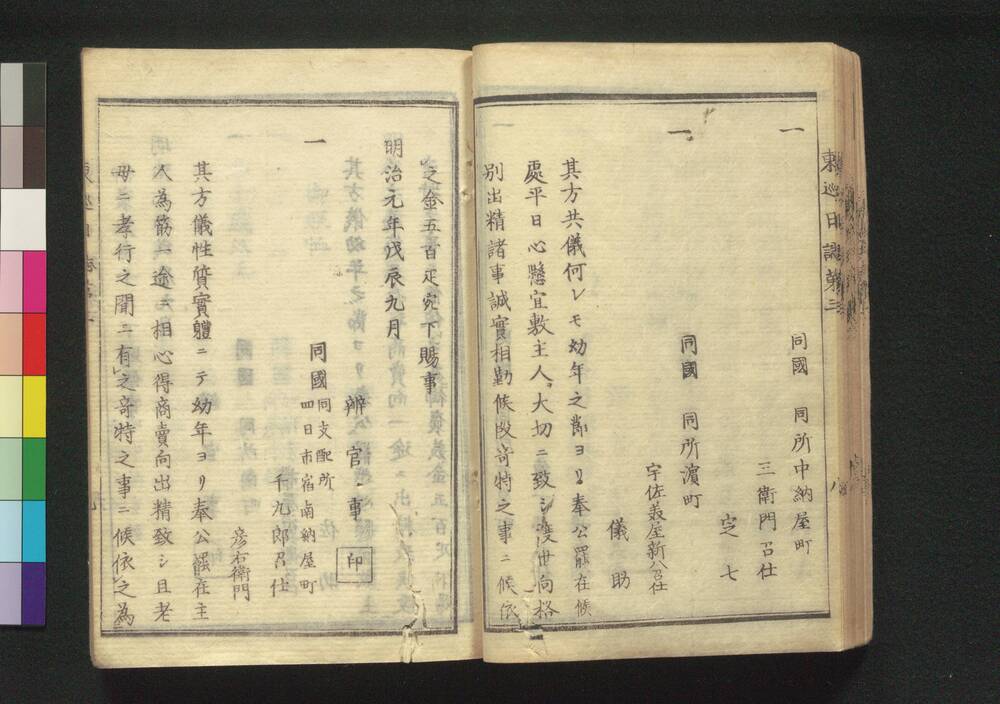 東巡日誌第三
八
一
同國　同所中納屋町
三衛門召仕
定七
一
同國　同所濱町
宇佐美屋新八召仕
儀助
其方共儀何レモ幼年之節ヨリ奉公罷在候
處平日心懸宜敷主人大切ニ致シ渡世向格
別出精諸事誠實相勤候段竒特之事ニ候依
之金五百疋宛下賜事
明治元年戊辰九月
辨官事　印
一
同國同支配所
四日市宿南納屋町
千九郎召仕
彦右衛門
其方儀性質實軆ニテ幼年ヨリ奉公罷在主
人為筋一途ニ相心得商賣向出精致シ且老
母ニ孝行之聞ニ有之竒特之事ニ候依之為